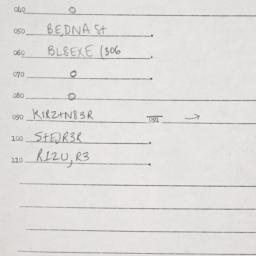 040 O
050 BE,DNA St
060 BL8EXE (306
070 O
080 O
090 KIRZtN83R 091 →
100 StE)R3R
110 R12U,R3